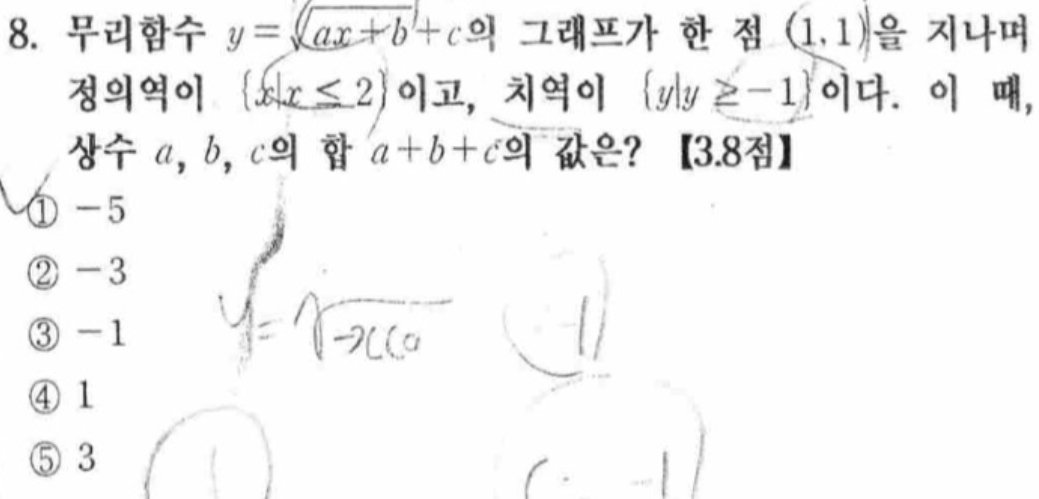 8. 무리함수 y=√(ax+b)+c의 그래프가 한 점 (1, 1)을 지나며
정의역이 {x|x≤2}이고, 치역이 {y|y≥-1}이다. 이 때,
상수 a, b, c의 합 a+b+c의 값은? 【3.8점】
① -5
② -3
③ -1
④ 1
⑤ 3
y=√
-1